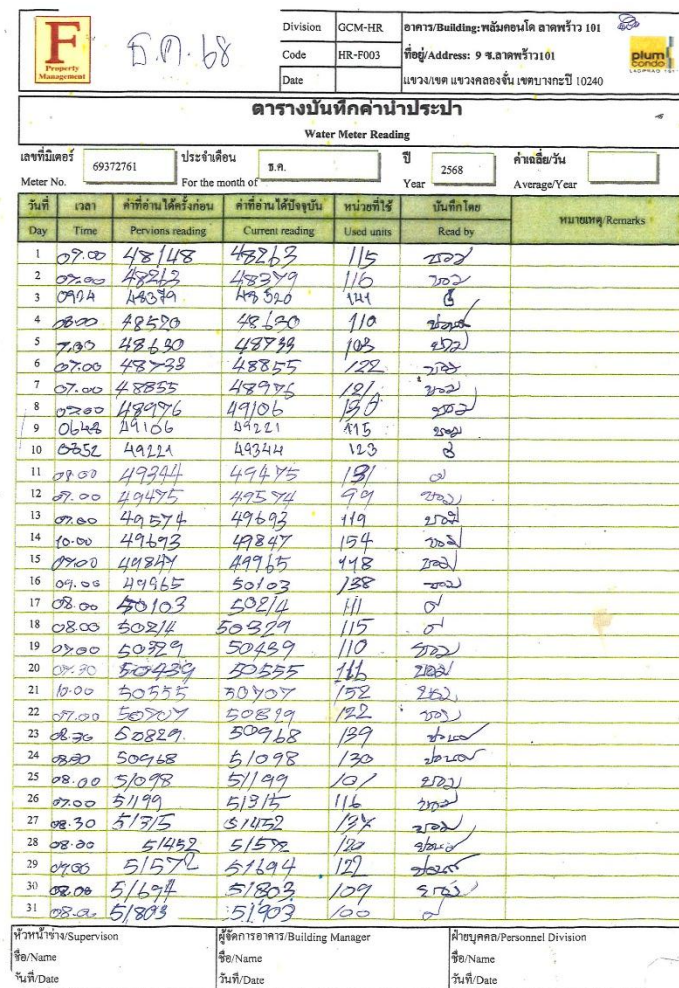 F
Property
Management
ธ.ค. 68
Division GCM-HR อาคาร/Building: พลัมคอนโด ลาดพร้าว 101
Code HR-F003 ที่อยู่/Address: 9 ซ.ลาดพร้าว101
Date แขวง/เขต แขวงคลองจั่น เขตบางกะปิ 10240
plum
condo
LADPRAO 101
ตารางบันทึกค่าน้ำประปา
Water Meter Reading
เลขที่มิเตอร์ 69372761 ประจำเดือน ธ.ค. ปี 2568 ค่าเฉลี่ย/วัน
Meter No. For the month of Year Average/Year
วันที่ เวลา ค่าที่อ่านได้ครั้งก่อน ค่าที่อ่านได้ปัจจุบัน หน่วยที่ใช้ บันทึกโดย หมายเหตุ/Remarks
Day Time Pervions reading Current reading Used units Read by
1 07.00 48148 48263 115
2 07.00 48263 48379 116
3 0924 48379 48520 141
4 08.00 48520 48630 110
5 7.00 48630 48733 103
6 07.00 48733 48855 122
7 07.00 48855 48976 121
8 07.00 48976 49106 130
9 0648 49106 49221 115
10 0352 49221 49344 123
11 08.00 49344 49475 131
12 07.00 49475 49574 99
13 07.00 49574 49693 119
14 10.00 49693 49847 154
15 07.00 49847 49965 118
16 09.00 49965 50103 138
17 08.00 50103 50214 111
18 08.00 50214 50329 115
19 07.00 50329 50439 110
20 07.30 50439 50555 116
21 10.00 50555 50707 152
22 07.00 50707 50829 122
23 08.30 50829 50968 139
24 08.30 50968 51098 130
25 08.00 51098 51199 101
26 07.00 51199 51315 116
27 08.30 51315 51452 137
28 08.00 51452 51572 120
29 07.00 51572 51694 122
30 08.00 51694 51803 109
31 08.00 51803 51903 100
หัวหน้าช่าง/Supervison ผู้จัดการอาคาร/Building Manager ฝ่ายบุคคล/Personnel Division
ชื่อ/Name ชื่อ/Name ชื่อ/Name
วันที่/Date วันที่/Date วันที่/Date